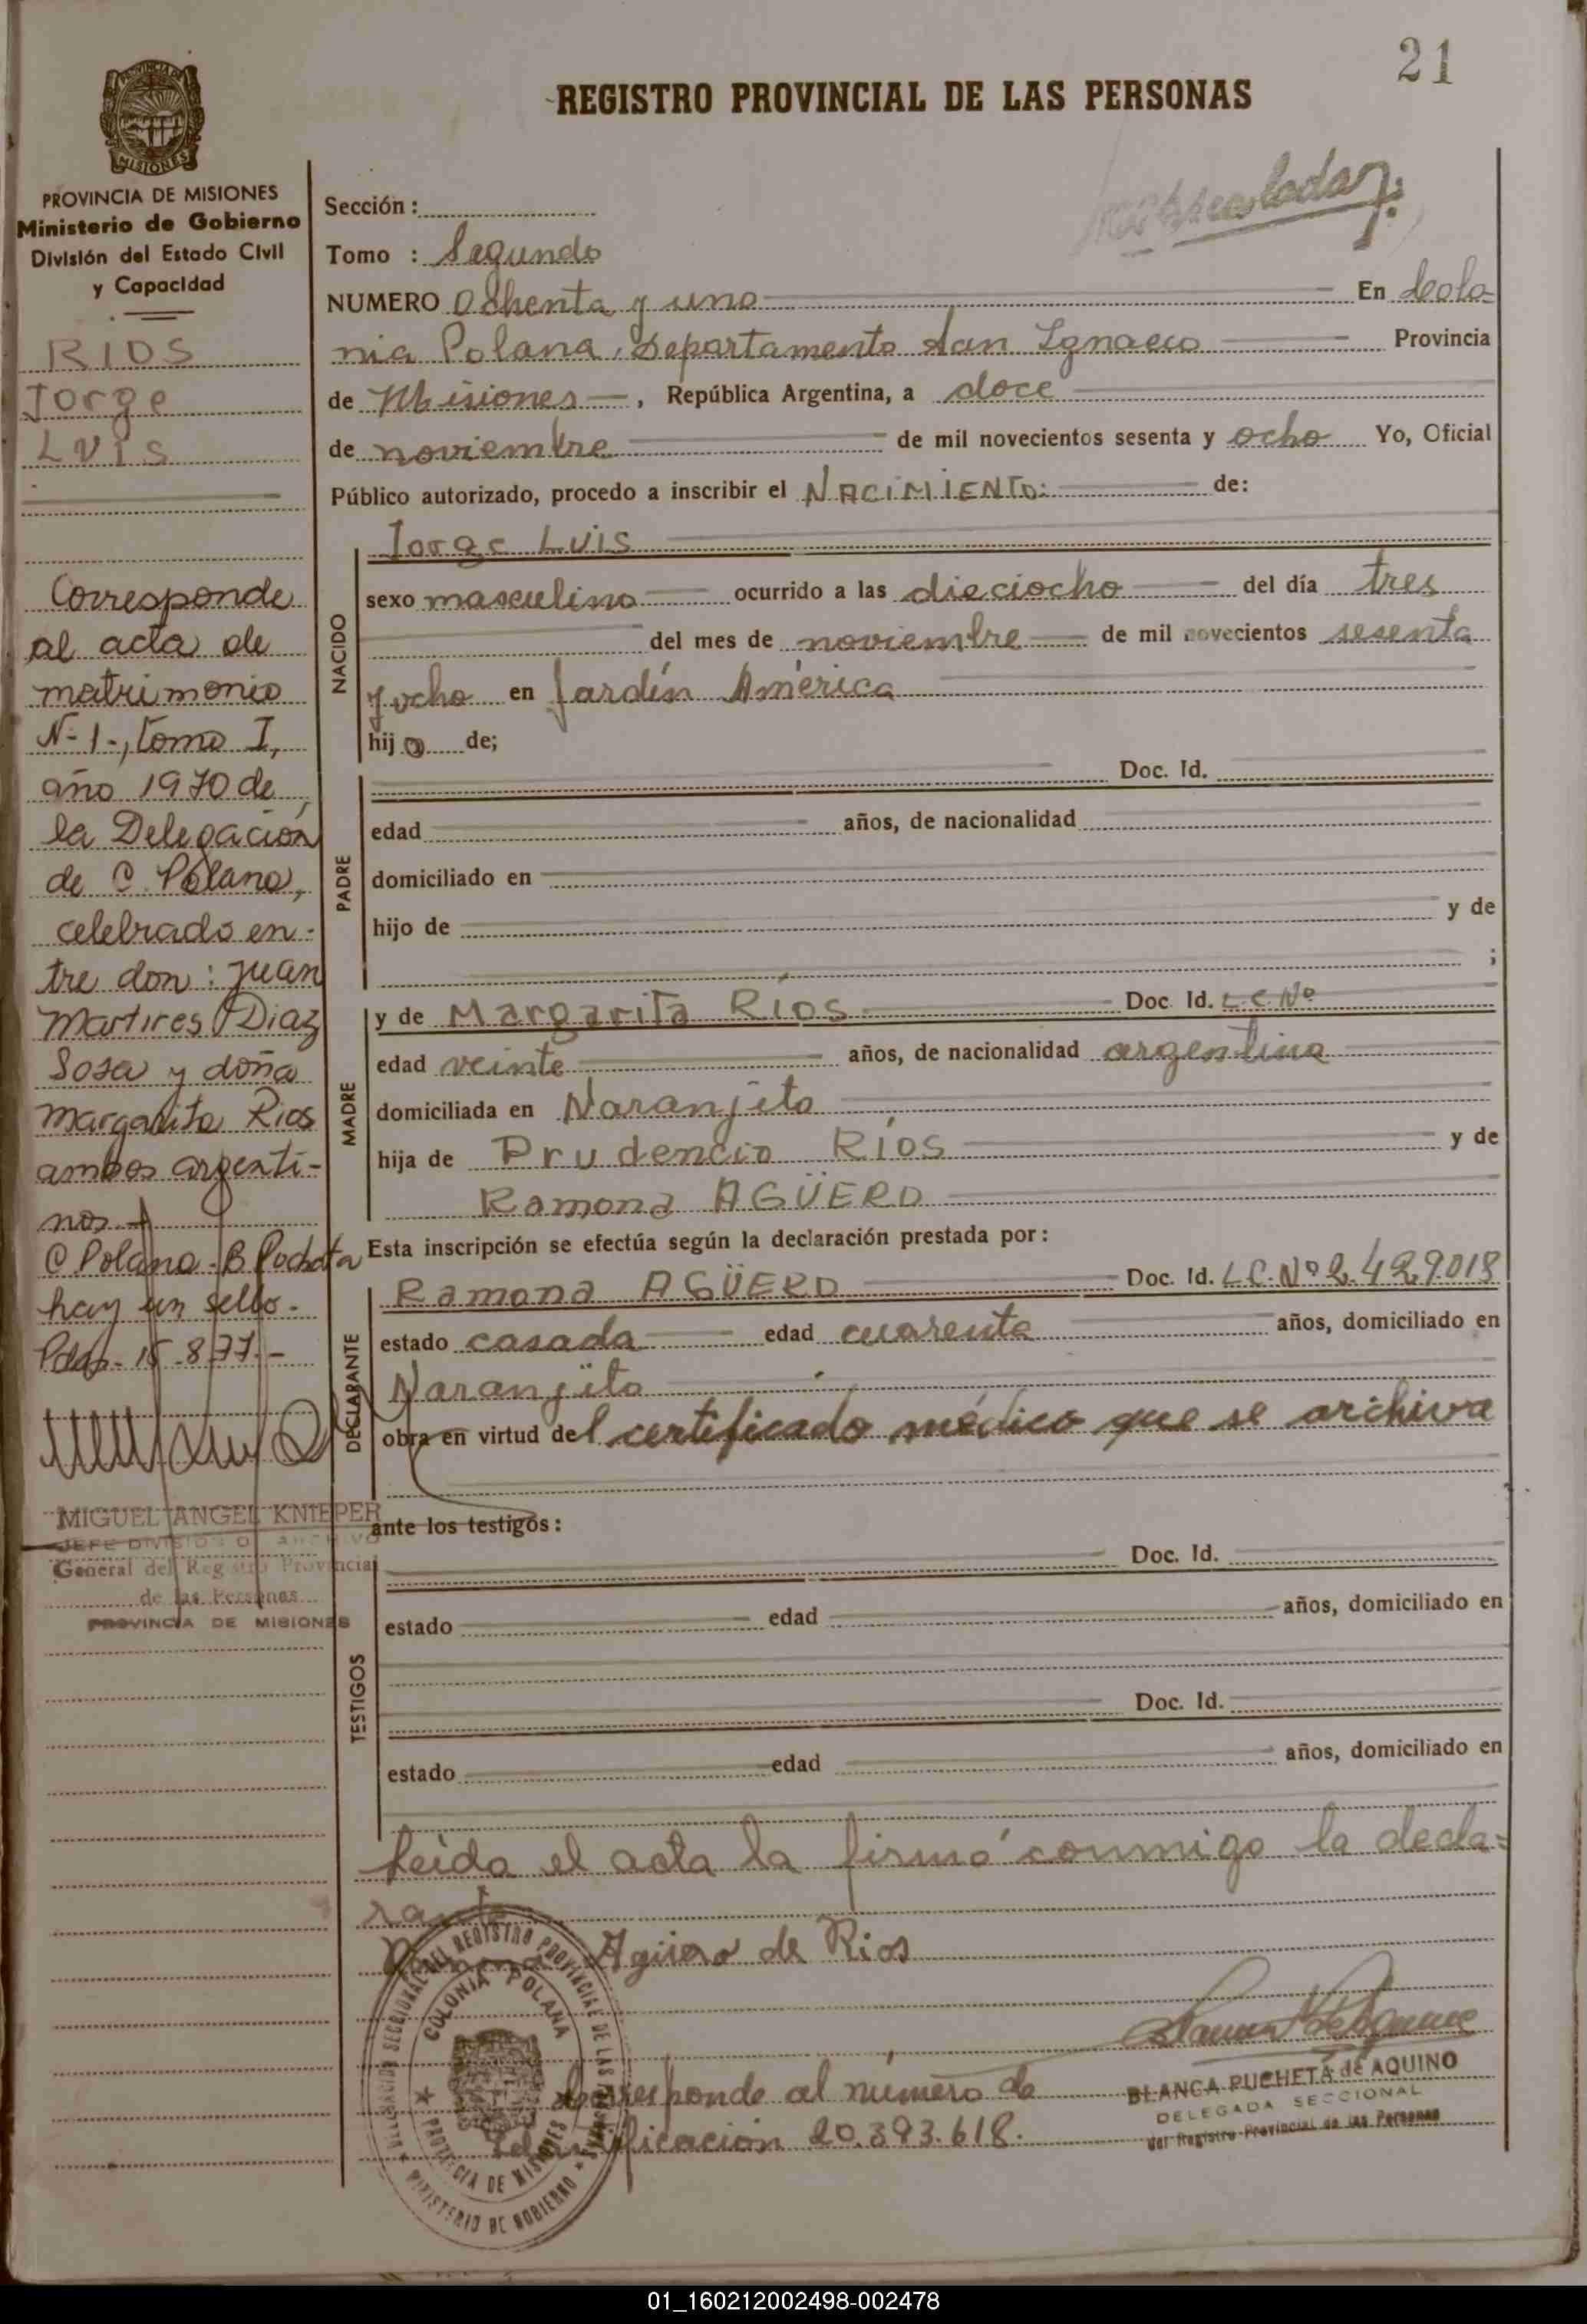 21
REGISTRO PROVINCIAL DE LAS PERSONAS
PROVINCIA DE MISIONES
Ministerio de Gobierno
División del Estado Civil
y Capacidad
RIOS
Jorge
LUIS
Corresponde
al acta de
matrimonio
Nº 1-, Tomo I,
año 1970 de
la Delegación
de C. Polana,
celebrado en-
tre don: Juan
Martires Diaz
Sosa y doña
Margarita Rios
ambos argenti-
nos
C Polana - B Pocheta
hay un sello.
Pdas- 15-8-77.-
MIGUEL ANGEL KNIEPER
JEFE DIVISION ARCHIVO
General del Registro Provincial
de las Personas
PROVINCIA DE MISIONES
Sección :
Tomo : Segundo
NUMERO Ochenta y uno En Colo-
nia Polana, Departamento San Ignacio Provincia
de Misiones, República Argentina, a doce
de noviembre de mil novecientos sesenta y ocho Yo, Oficial
Público autorizado, procedo a inscribir el NACIMIENTO: de:
NACIDO
Jorge LUIS
sexo masculino ocurrido a las dieciocho del día tres
del mes de noviembre de mil novecientos sesenta
y ocho en Jardín América
hijo de;
PADRE
Doc. Id.
edad años, de nacionalidad
domiciliado en
hijo de y de
;
MADRE
y de Margarita RIOS Doc. Id. L.C. Nº
edad veinte años, de nacionalidad argentina
domiciliada en Naranjito
hija de Prudencio RÍOS y de
Ramona AGÜERO
Esta inscripción se efectúa según la declaración prestada por:
DECLARANTE
Ramona AGÜERO Doc. Id. L.C. Nº 2.429.018
estado casada edad cuarenta años, domiciliado en
Naranjito
obra en virtud del certificado médico que se archiva
ante los testigos:
TESTIGOS
Doc. Id.
estado edad años, domiciliado en
Doc. Id.
estado edad años, domiciliado en
Leída el acta la firmó conmigo la decla-
rante
Ramona Agüero de Rios
DELEGACION SECCIONAL DEL REGISTRO PROVINCIAL DE LAS PERSONAS
COLONIA POLANA
PROVINCIA DE MISIONES
MINISTERIO DE GOBIERNO
Corresponde al número de
Identificación 20.393.618.
BLANCA PUCHETA de AQUINO
DELEGADA SECCIONAL
del Registro Provincial de las Personas
01_160212002498-002478